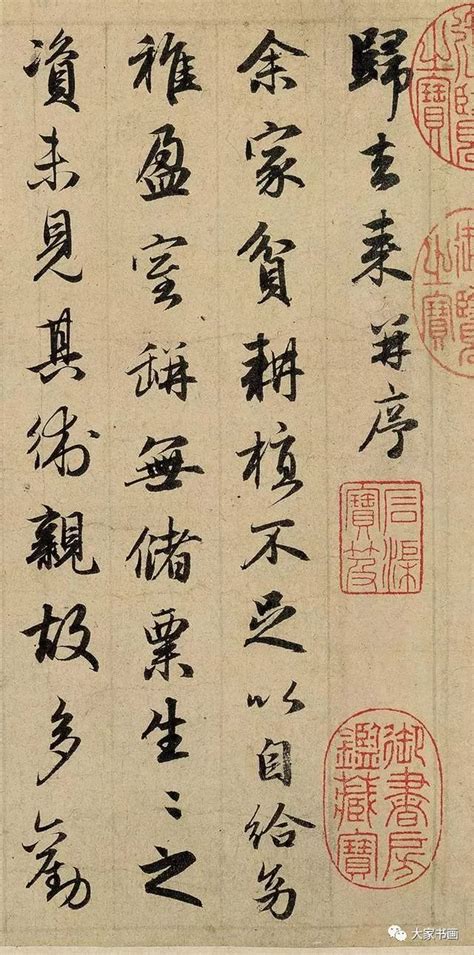 歸去来并序
余家貧耕植不足以自給幼
稚盈室缾無儲粟生〻之
資未見其術親故多勸
石渠寶笈
御書房鑑藏寶
大家书画